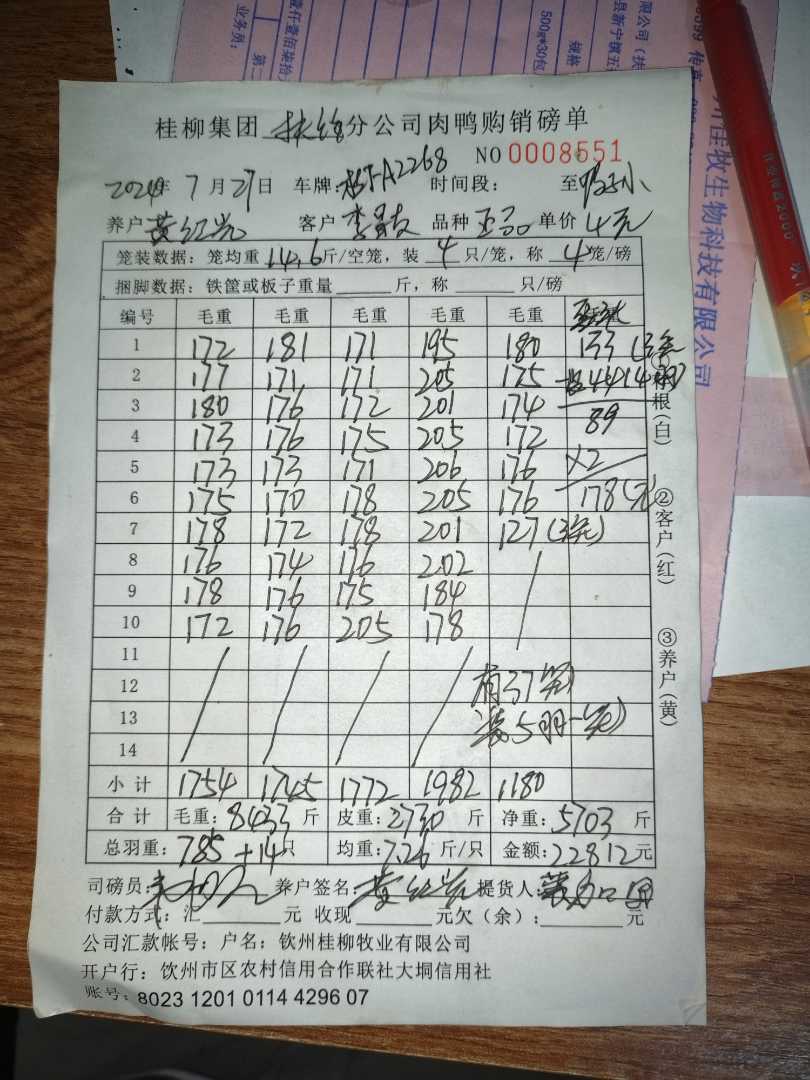 壹仟壹佰柒拾
业务员：
第二
500g*30包
规格
有限公司（扶
县新宁镇五
州桂牧生物科技有限公司
桂柳集团 扶绥 分公司肉鸭购销磅单
NO 0008551
2024年 7月27日 车牌： 时间段： 至
养户 黄红 客户 李 品种 单价 4元
笼装数据：笼均重 14.6 斤/空笼，装 4 只/笼，称 4 笼/磅
捆脚数据：铁筐或板子重量 斤，称 只/磅
编号 毛重 毛重 毛重 毛重 毛重
1 172 181 171 195 180 133 (3笼
2 177 171 171 205 175 44 (14羽)
3 180 176 172 201 174 89
4 173 176 175 205 172
5 173 173 171 206 176 ×2
6 175 170 178 205 176 178(元)
7 178 172 178 201 127 (3笼)
8 176 174 176 202
9 178 176 175 184
10 172 176 205 178
11
12 有37笼
13 装5羽一笼
14
小计 1754 1745 1772 1982 1180
合计 毛重：8433 斤 皮重：2730 斤 净重：5703 斤
总羽重：785+14只 均重：7.26 斤/只 金额：22812元
司磅员： 养户签名：黄红 提货人：
付款方式：汇 元 收现 元欠（余）： 元
公司汇款帐号：户名：钦州桂柳牧业有限公司
开户行：饮州市区农村信用合作联社大垌信用社
账号：8023 1201 0114 4296 07
根（白）
②客户（红）
③养户（黄）